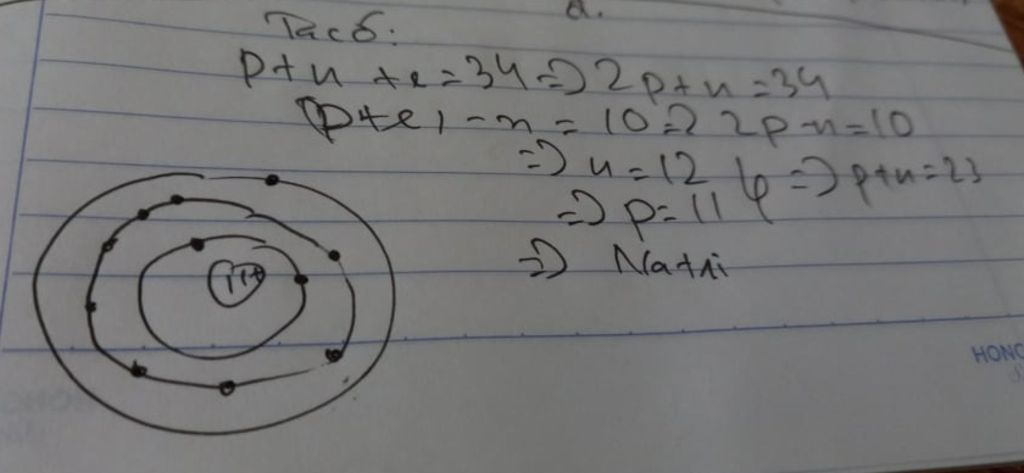 Ta có:
p+n+e=34 => 2p+n=34
(p+e)-n=10 => 2p-n=10
=> n=12
=> p=11 } => p+n=23
=> Natri
11+
HONG